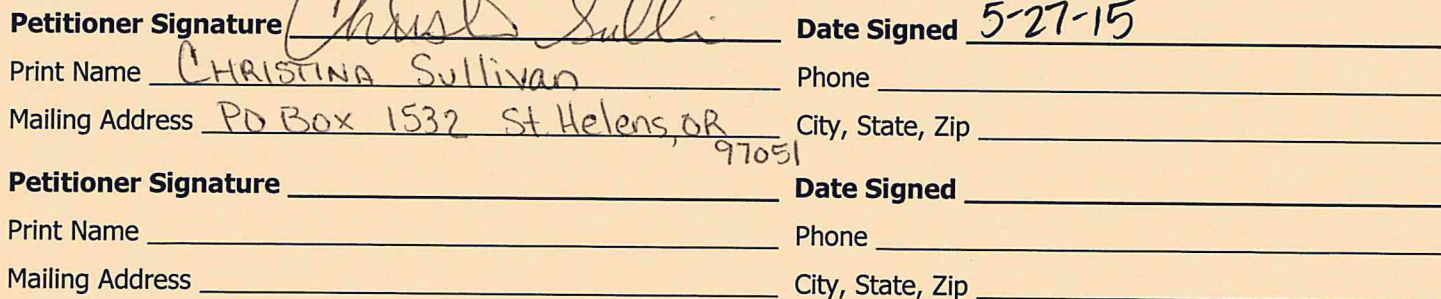 Petitioner Signature Christ Sulli Date Signed 5-27-15
Print Name CHRISTINA Sullivan Phone
Mailing Address PO Box 1532 St. Helens, OR City, State, Zip
97051
Petitioner Signature Date Signed
Print Name Phone
Mailing Address City, State, Zip